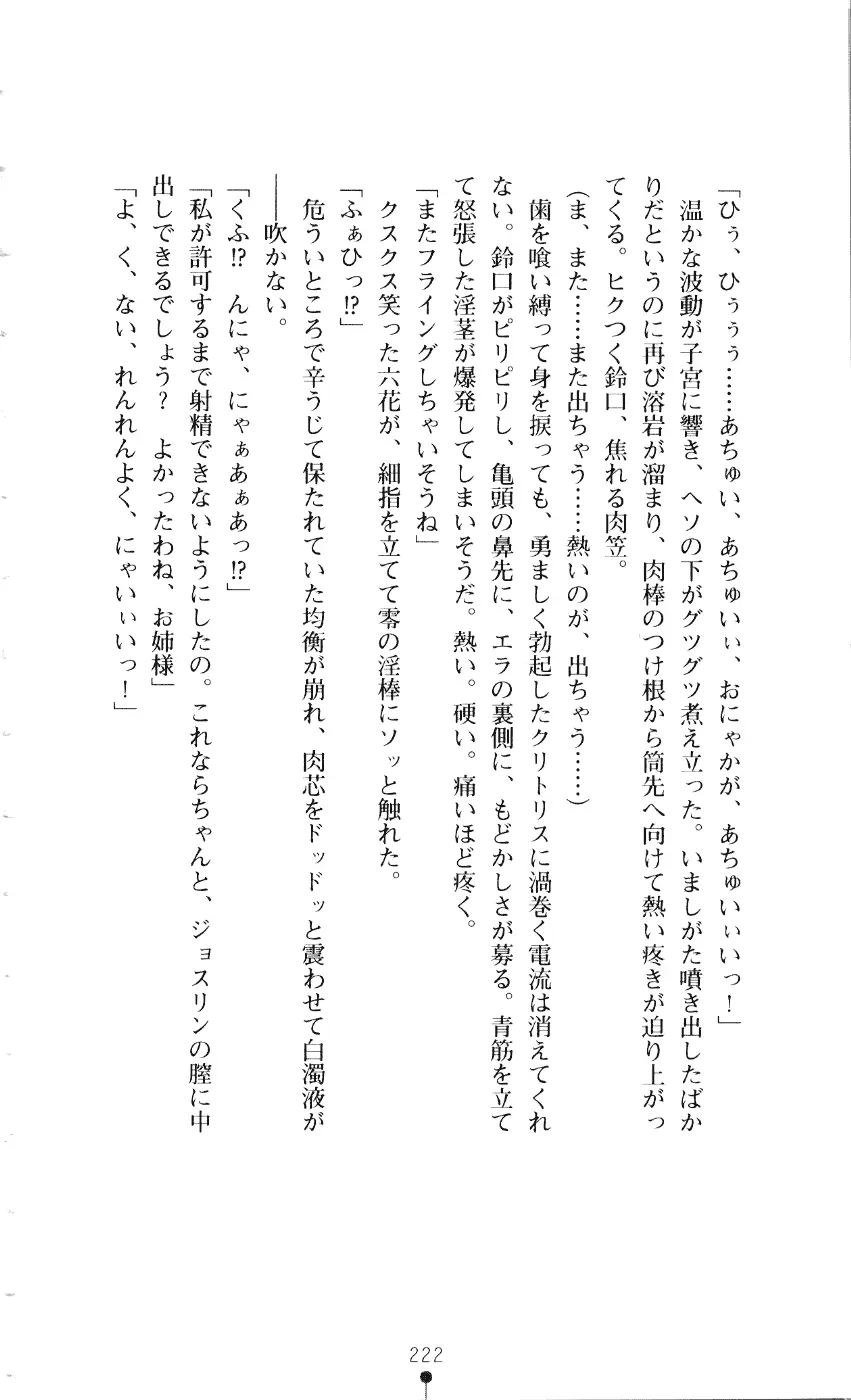 「ひぅ、ひぅぅぅ……あちゅい、あちゅいぃ、おにゃかが、あちゅいぃいっ！」
温かな波動が子宮に響き、ヘソの下がグツグツ煮え立った。いましがた噴き出したばか
りだというのに再び溶岩が溜まり、肉棒のつけ根から筒先へ向けて熱い疼きが迫り上がっ
てくる。ヒクつく鈴口、焦れる肉笠。
（ま、また……また出ちゃう……熱いのが、出ちゃう……）
歯を喰い縛って身を捩っても、勇ましく勃起したクリトリスに渦巻く電流は消えてくれ
ない。鈴口がピリピリし、亀頭の鼻先に、エラの裏側に、もどかしさが募る。青筋を立て
て怒張した淫茎が爆発してしまいそうだ。熱い。硬い。痛いほど疼く。
「またフライングしちゃいそうね」
クスクス笑った六花が、細指を立てて零の淫棒にソッと触れた。
「ふぁひっ!?」
危ういところで辛うじて保たれていた均衡が崩れ、肉芯をドッドッと震わせて白濁液が
――吹かない。
「くふ!?　んにゃ、にゃぁあぁあっ!?」
「私が許可するまで射精できないようにしたの。これならちゃんと、ジョスリンの膣に中
出しできるでしょう？　よかったわね、お姉様」
「よ、く、ない、れんれんよく、にゃいぃいっ！」
222